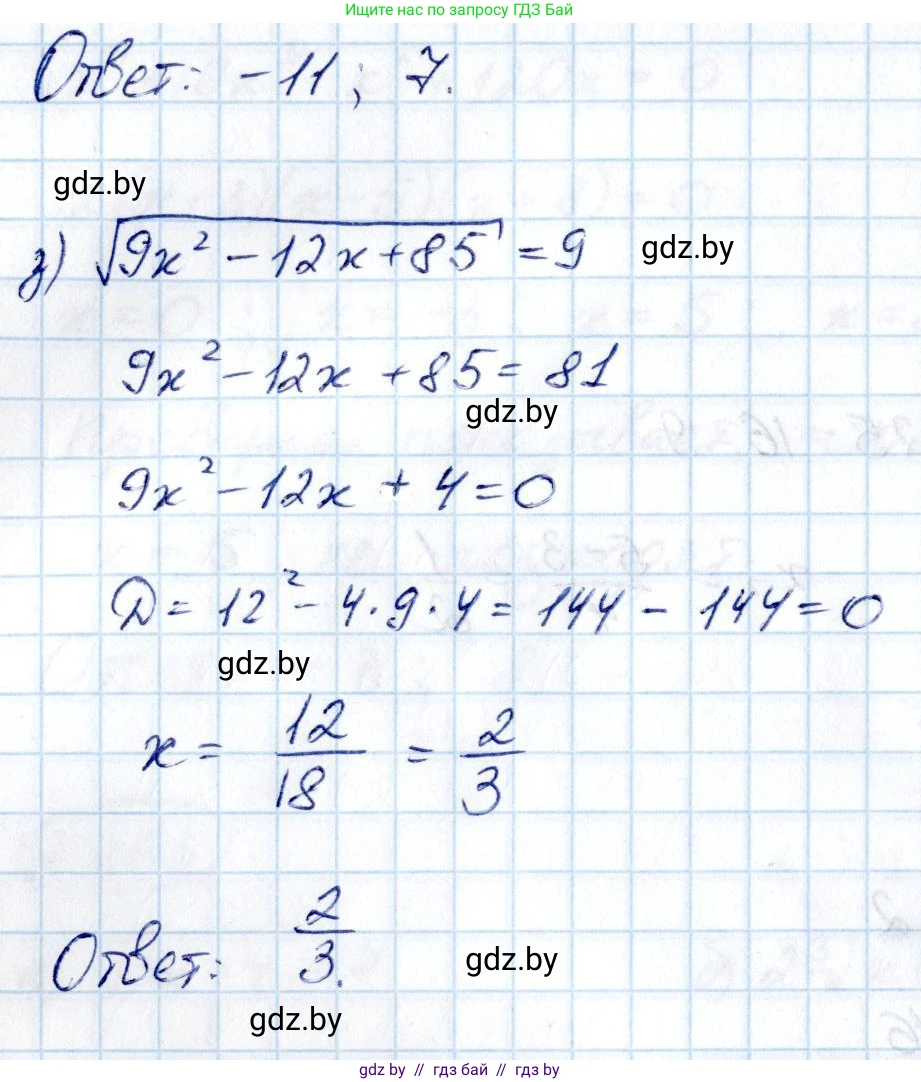 Ищите нас по запросу ГДЗ Бай
Ответ: -11; 7.
gdz.by
з) √(9x² - 12x + 85) = 9 gdz.by
9x² - 12x + 85 = 81
gdz.by
9x² - 12x + 4 = 0
D = 12² - 4·9·4 = 144 - 144 = 0
gdz.by
x = 12/18 = 2/3
Ответ: 2/3.
gdz.by
gdz.by
gdz.by // гдз бай // гдз by